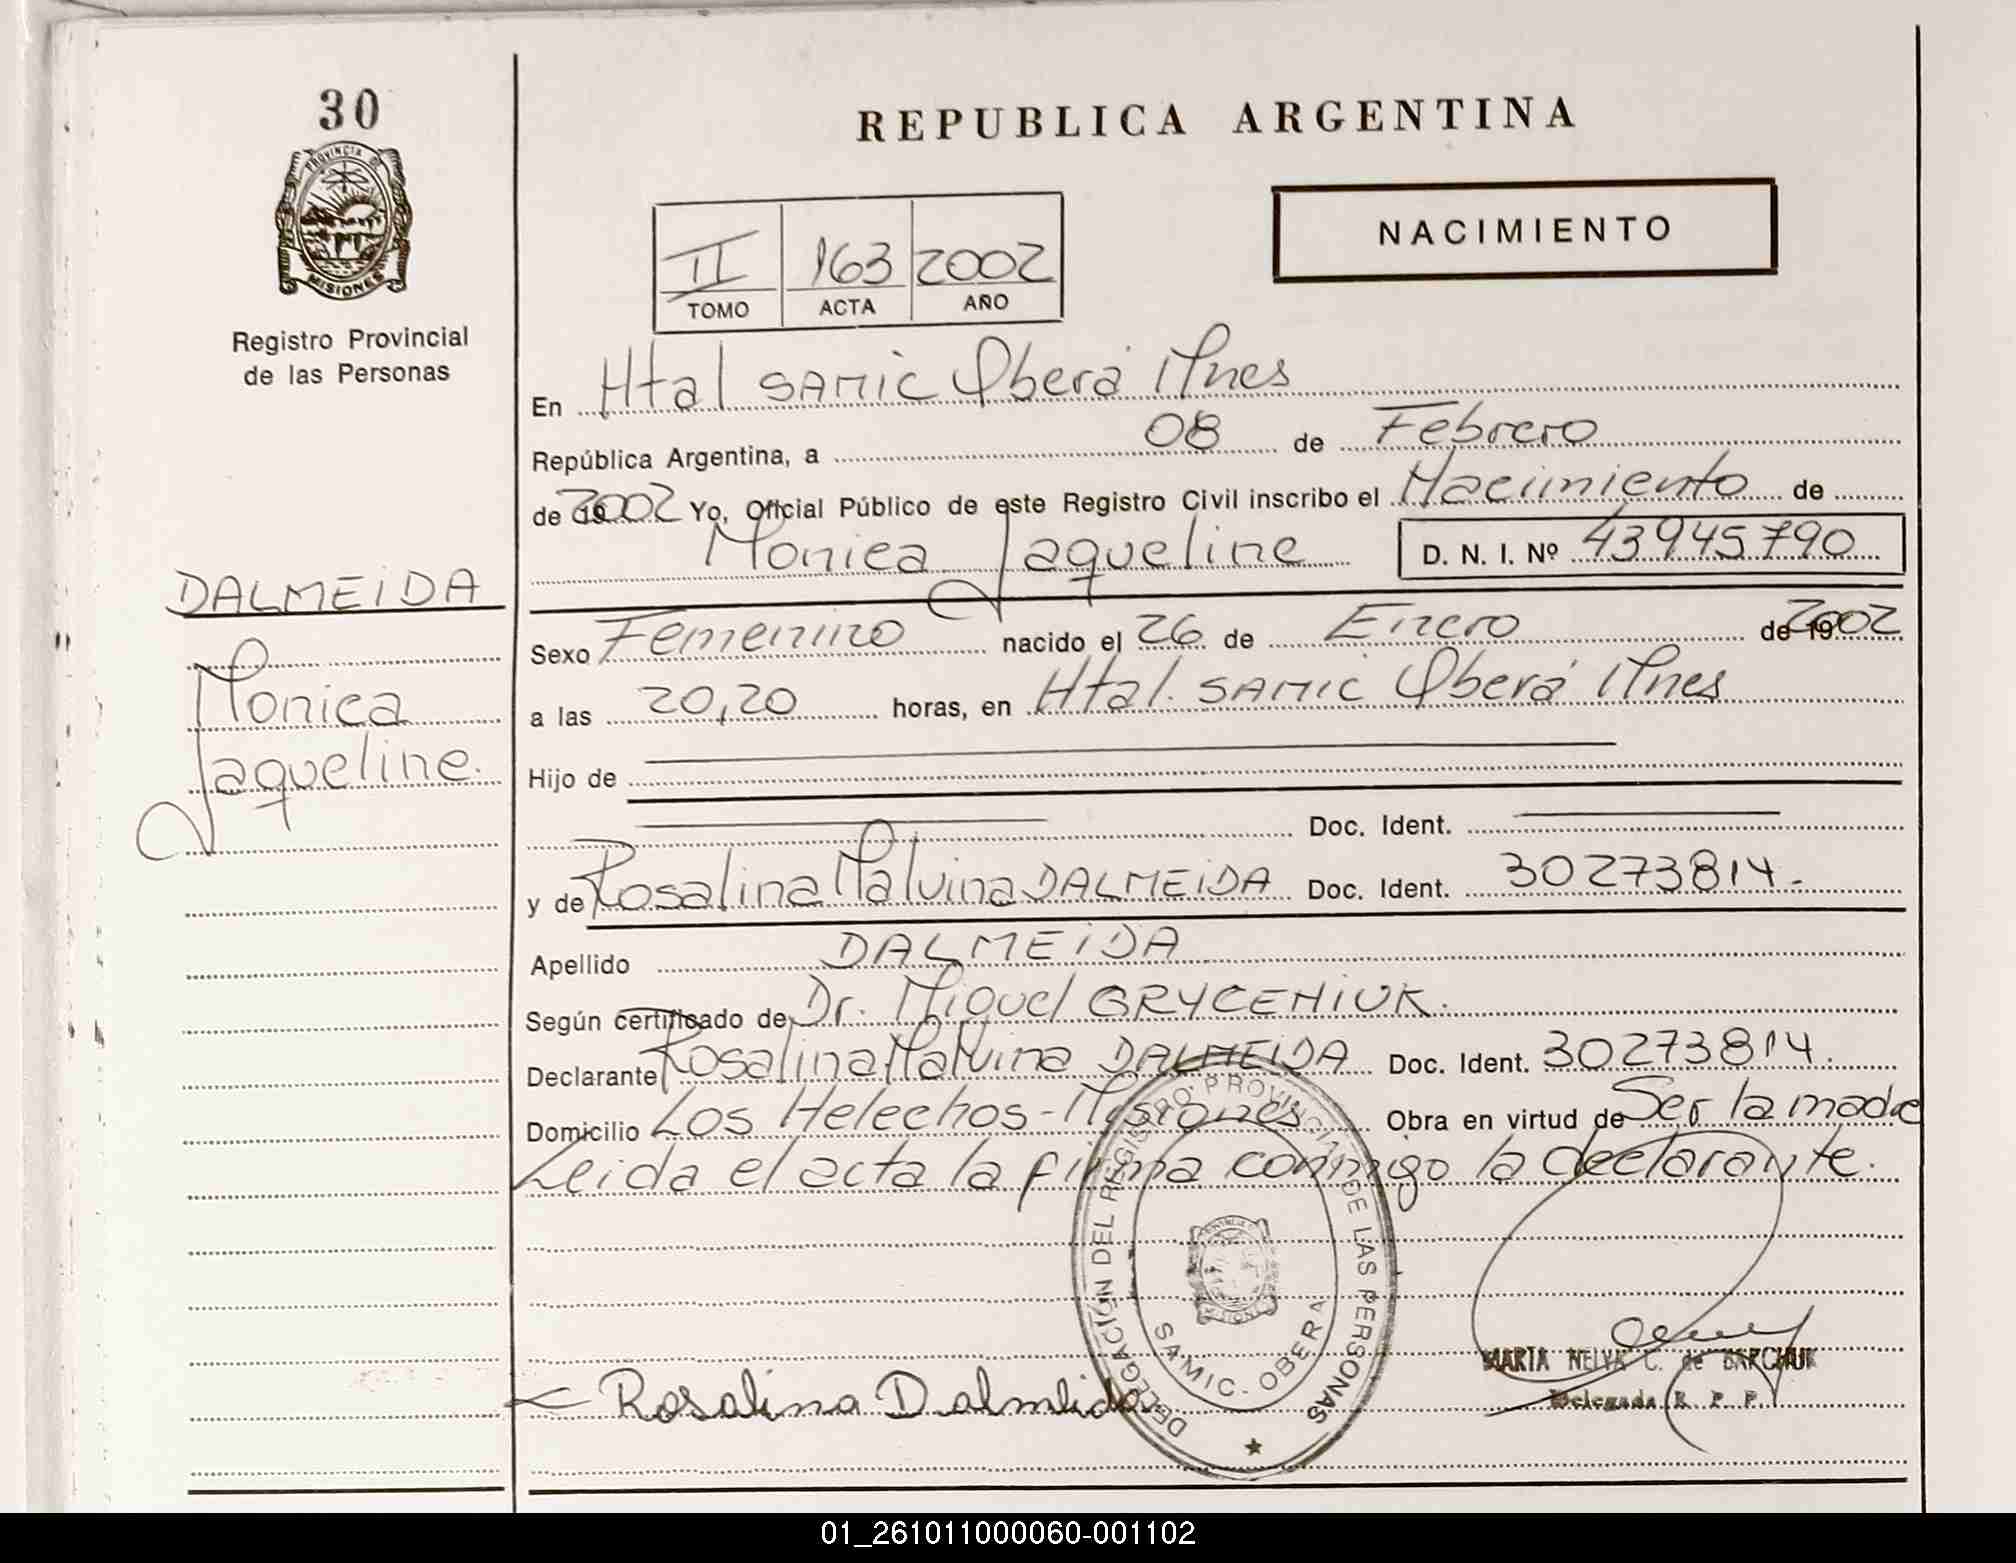 30
PROVINCIA DE
MISIONES
Registro Provincial
de las Personas
DALMEIDA
Monica
Jaqueline.
REPUBLICA ARGENTINA
NACIMIENTO
II 163 2002
TOMO ACTA AÑO
En Htal SAMIC Oberá Mnes
República Argentina, a 08 de Febrero
de 2002 Yo, Oficial Público de este Registro Civil inscribo el Nacimiento de
Monica Jaqueline D. N. I. Nº 43945790
Sexo Femenino nacido el 26 de Enero de 2002
a las 20,20 horas, en Htal. SAMIC Oberá Mnes
Hijo de
Doc. Ident.
y de Rosalina Malvina DALMEIDA Doc. Ident. 30273814.
Apellido DALMEIDA
Según certificado de Dr. Miguel GRYCENIUK.
Declarante Rosalina Malvina DALMEIDA Doc. Ident. 30273814.
Domicilio Los Helechos - Misiones Obra en virtud de Ser la madre
Leida el acta la firma conmigo la declarante.
DELEGACIÓN DEL REGISTRO PROVINCIAL DE LAS PERSONAS
SAMIC - OBERA
MARTA NELVA C. de BARCHUK
Delegada R. P. P.
Rosalina Dalmeida
01_261011000060-001102